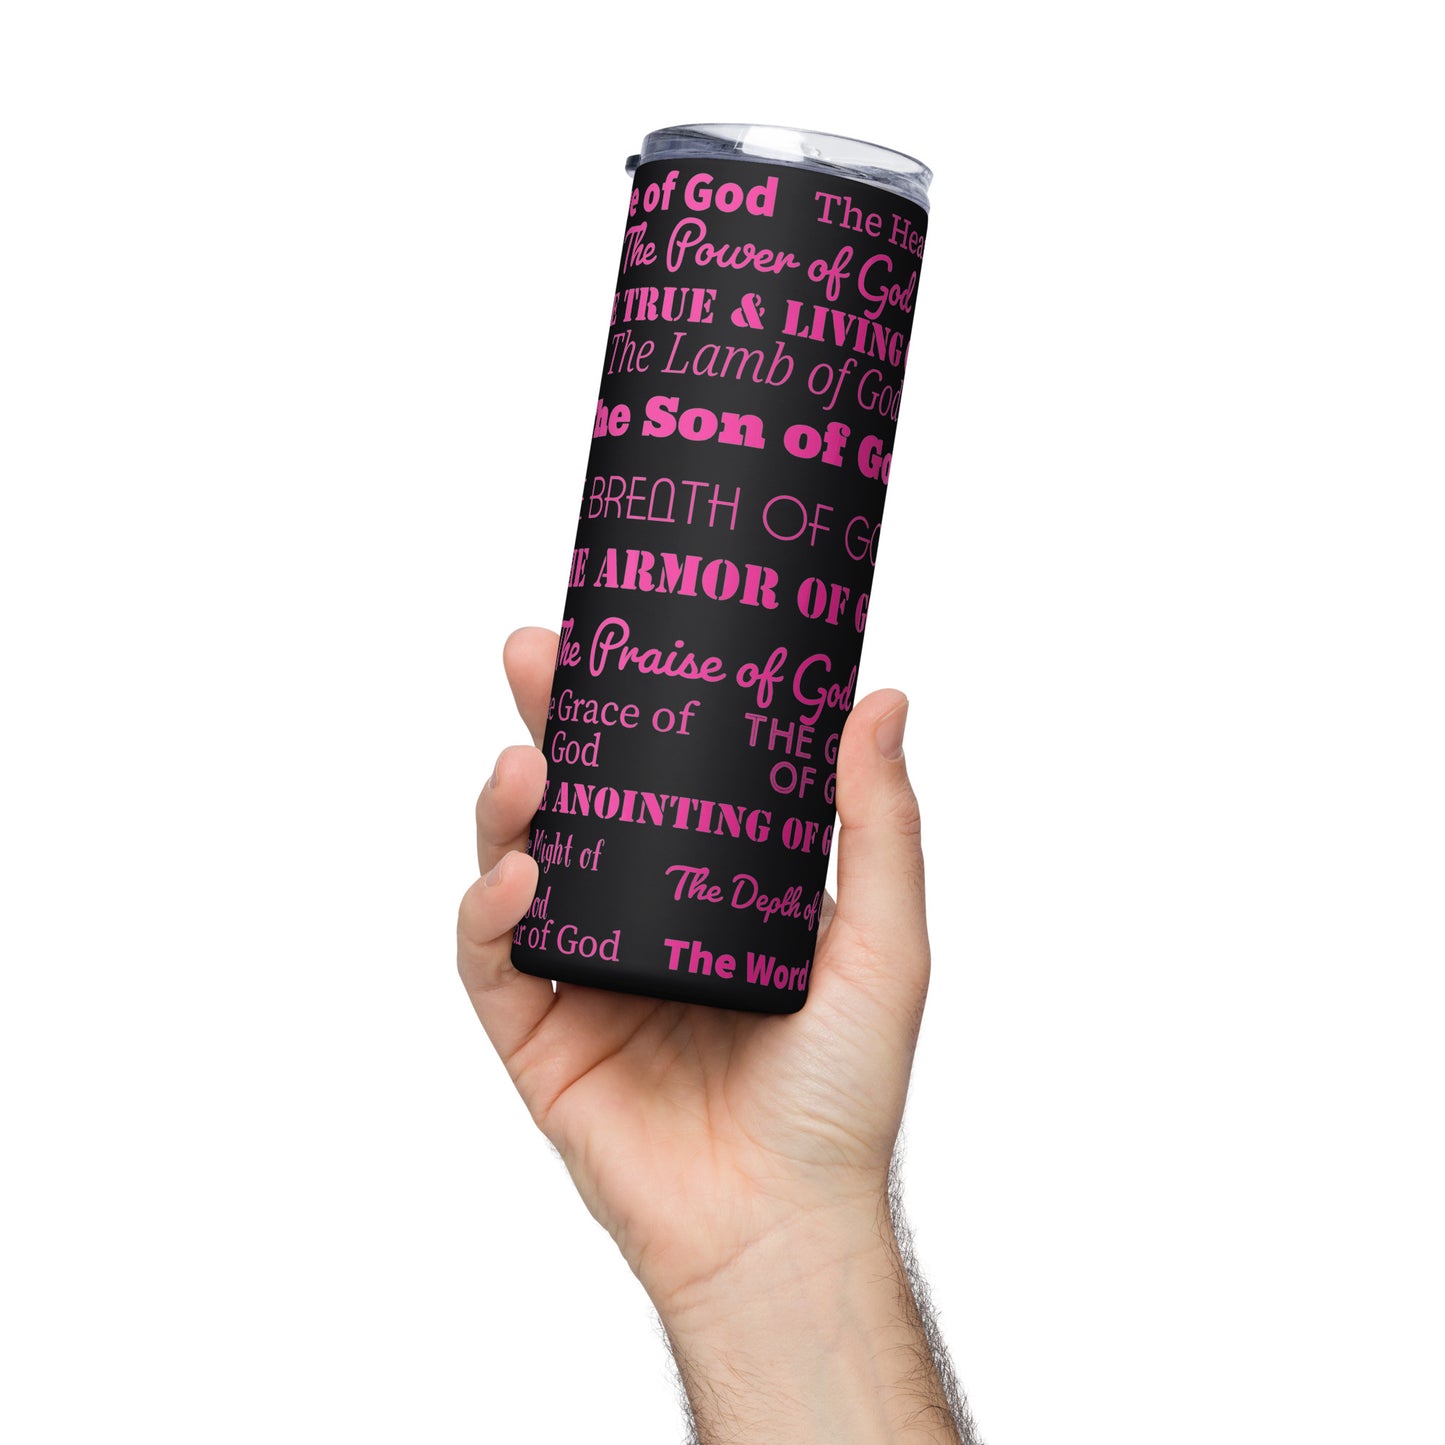 of God The
The Power of God
TRUE & LIVING
The Lamb of God
The Son of
BREATH OF
ARMOR OF
The Praise of God
Grace of THE
God OF
ANOINTING OF
Might of
The Depth of
of God The Word